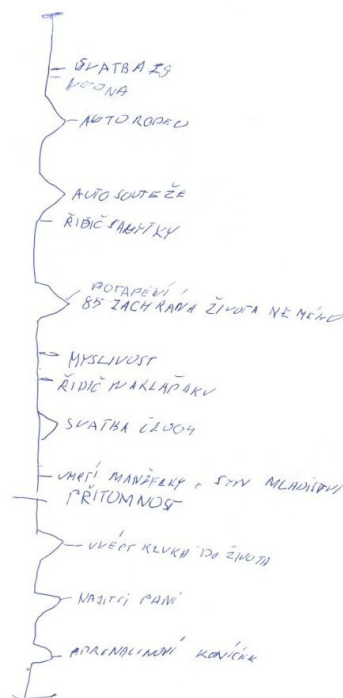 SVATBA
VOJNA
AUTORODEO
AUTOSOUTĚŽE
ŘIDIČ SANITKY
POTÁPĚNÍ
85 ZÁCHRANA ŽIVOTA NE MÉHO
MYSLIVOST
ŘIDIČ NÁKLAĎÁKU
SVATBA 2004
ÚMRTÍ MANŽELKY + SYN MLADISTVÍ
PŘÍTOMNOST
UVÉST KLUKA DO ŽIVOTA
NAJITÍ PANÍ
ADRENALINOVÍ KONÍČEK